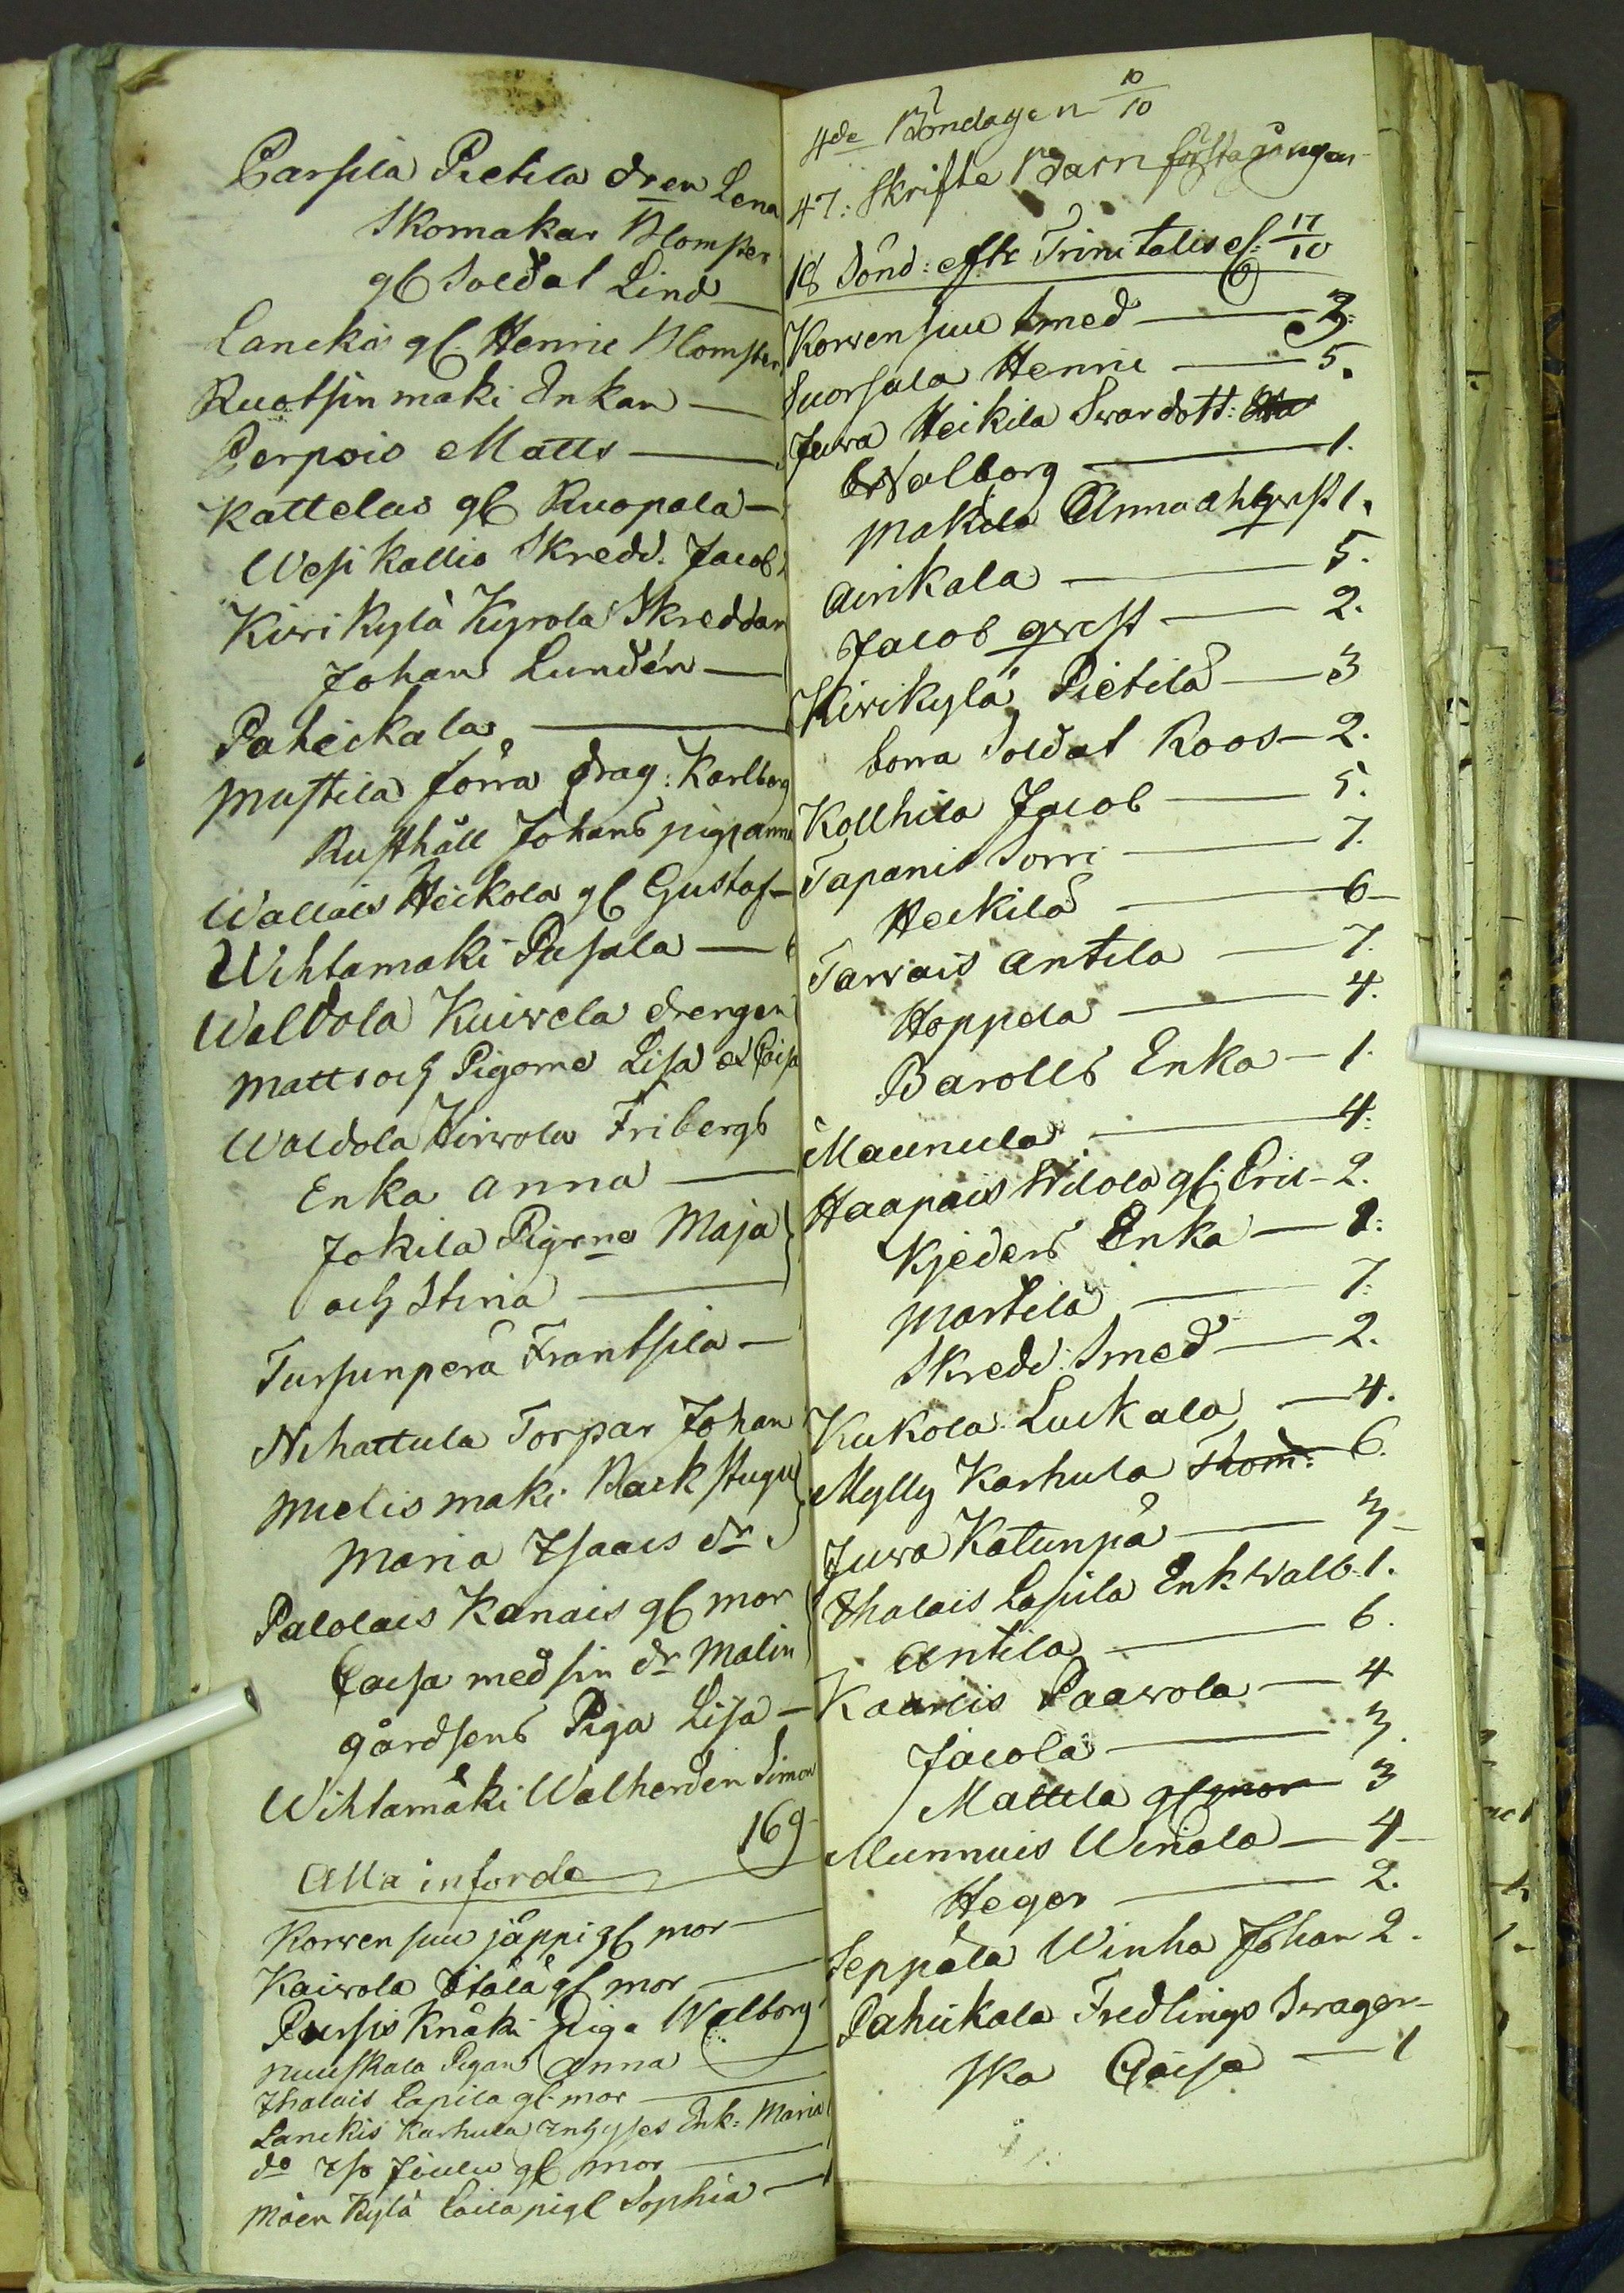 Parsila Pietila dren Lena
Skomakar Blomster
gl Soldat Lind
Lancki gl. Henric Blomster
Ruotsinmaki Enkan
Perpois Matts
Kattelus gl Ruopala
Wesikallio Skredd. Jacob
Kirrikylä Kyrola Skreddar
Johan Lundén
Paheckala
Mustila förra drag: Karlborg
Rusthåll Johans pig: anna
Wallais Heikola gl Gustaf
Wihtamaki Pasala
Waldola Kuivela drengen
Matts och Pigorne Lisa & Caisa
Waldola Hirvola Fribergs
Enka Anna
Jokila Pigorne Maja
och Stina
Tursunperä Frantsila
Nihattula Torpar Johan
Mielismaki Backstugu
Maria Isaacs dr
Palolais Kanais gl mor
Caisa med sin dr Malin
gårdsens Piga Lisa
Wihtamäki Walherden Simon
169
Alla införde
Korvensuu jäppi gl mor
Kaivola Itälä gl mor
Pursis Knäki Piga Walborg
Nuuskala Pigan Anna
Ihalais Lapila gl. mor
Lanckis Karhula Inhyses Enk: Maria
do Iso Jöulu gl mor
Mäenkylä Caila pig Sophia
4de Böndagen 10/10
47: Skrifte Barn första gången
18 Sönd: eft Trinitatis el: 17/10
Korvensuu Smed 3:
Suorsala Henric 5.
Juva Heikila Svardott:
Walborg 1.
Makila Anna ahlqvist 1.
Airikala 5.
Jacob qvist 2.
Kirikylä Pietilä 3
Sorra Soldat Roos 2.
Kollhila Jacob 5.
Tapanis Sorri 7.
Heikilä 6
Tarvais Antila 7.
Hoppela 4.
Barolls Enka 1.
Maunula 4.
Haapais Wilola gl: Eric 2.
Kjeders Enka 1:
Martila 7.
Skredd: Smed 2.
Kukola Luckala 4.
Mylly Karhula Thom: 6.
Juva Katunpä 3
Ihalais Lapila Enk Walb 1.
Antila 6.
Kaaris Paavola 4
Jacola 3.
Mattila gl mor 3
Munnuis Winola 4
Heger 2.
Seppala Winha Johan 2.
Pahickala Fredlings Svager-
ska Caisa 1